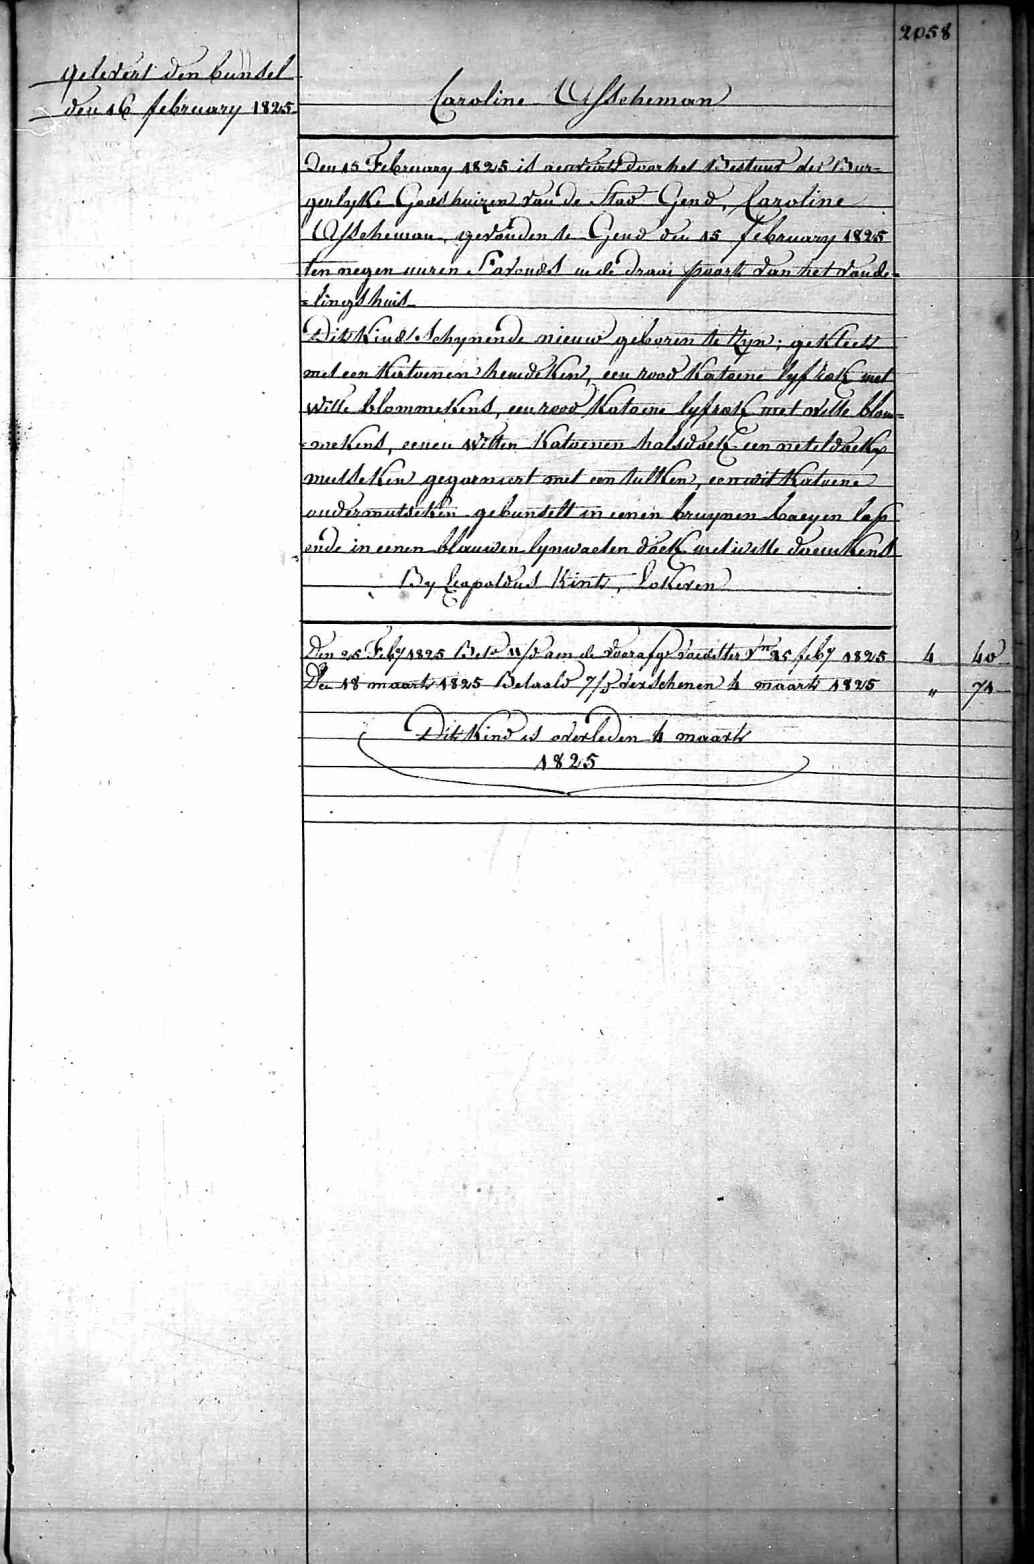 2058
gelevert den bunsel
den 16 february 1825
Caroline Usscheman
Den 15 February 1825 is aenveirt door het Bestuur der Bur=
gerlyke Godshuizen van de Stad Gend, Caroline
Usscheman, gevonden te Gend den 15 february 1825
ten negen uuren S'avonds in de draai poorte van het vonde=
=lingshuis
Dit Kind Schynende nieuw geboren te zyn; gekleet
met een Kattoenen hemdeken, een rood Katoene lyfrok met
witte blommekens, een rood Katoene lyfrok met witte blom=
=mekens, eenen witten Katoenen halsdoek een neteldoekx
mutseken gegarneert met een tulken, een wit Katoene
ondermutseken gebunselt in eenen bruynen baeyen lap
ende in eenen blauwen lynwaeten doek met witte
By Leopoldus Kints, Lokeren
Den 25 Feby 1825 aen de 25 feby 1825 4 40
Den 18 maarte 1825 Betaald 7/ verschenen 4 maarte 1825 " 71
Dit Kind is overleden 4 maarte
1825